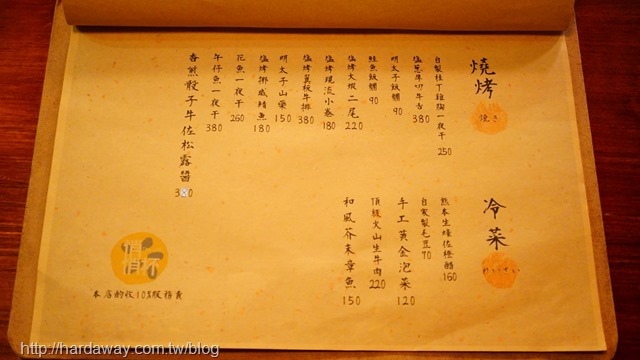 燒烤
焼き
自製桂丁雞胸一夜干 250
塩蔥厚切牛舌 380
明太子飯糰 90
鮭魚飯糰 90
塩烤大蝦二尾 220
塩烤現流小卷 180
塩烤翼板牛排 380
明太子山藥 150
塩烤挪威鯖魚 180
花魚一夜干 260
午仔魚一夜干 380
香煎骰子牛佐松露醬 380
冷菜
熊本生蠔佐橙醋 160
自家製毛豆 70
手工黃金泡菜 120
頂級火山生牛肉 220
和風芥末章魚 150
本店酌收10%服務費
http://hardaway.com.tw/blog